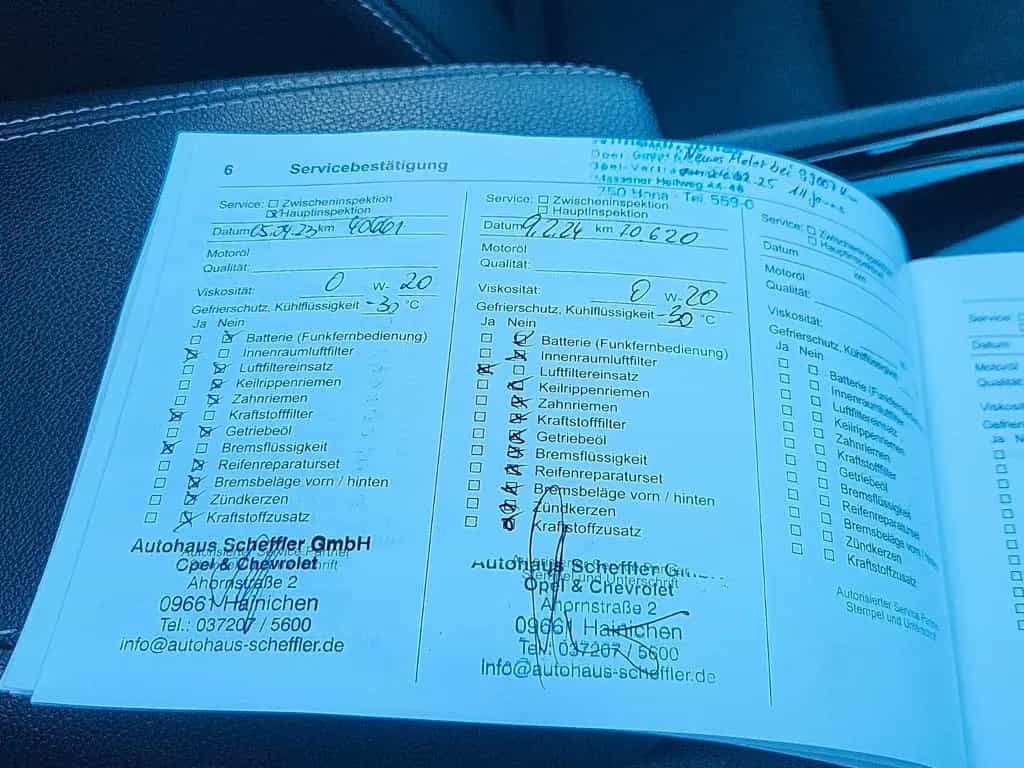 6 Servicebestätigung
Opel
Massener Hellweg 44-46
750 Unna - Tel 559-0
Neues Motor bei
Service: Zwischeninspektion
Hauptinspektion
Datum 05.04.23 km 40661
Motoröl
Qualität:
Viskosität: 0 W- 20
Gefrierschutz, Kühlflüssigkeit -30 °C
Ja Nein
Batterie (Funkfernbedienung)
Innenraumluftfilter
Luftfiltereinsatz
Keilrippenriemen
Zahnriemen
Kraftstofffilter
Getriebeöl
Bremsflüssigkeit
Reifenreparaturset
Bremsbeläge vorn / hinten
Zündkerzen
Kraftstoffzusatz
Autorisierter Service Partner
Autohaus Scheffler GmbH
Opel & Chevrolet
Ahornstraße 2
09661 Hainichen
Tel.: 037207 / 5600
info@autohaus-scheffler.de
Service: Zwischeninspektion
Hauptinspektion
Datum 9.2.24 km 70.620
Motoröl
Qualität:
Viskosität: 0 W- 20
Gefrierschutz, Kühlflüssigkeit -30 °C
Ja Nein
Batterie (Funkfernbedienung)
Innenraumluftfilter
Luftfiltereinsatz
Keilrippenriemen
Zahnriemen
Kraftstofffilter
Getriebeöl
Bremsflüssigkeit
Reifenreparaturset
Bremsbeläge vorn / hinten
Zündkerzen
Kraftstoffzusatz
Autohaus Scheffler
Stempel und Unterschrift
Opel & Chevrolet
Ahornstraße 2
09661 Hainichen
Tel.: 037207 / 5600
info@autohaus-scheffler.de
Service: Zwischeninspektion
Hauptinspektion
Datum km
Motoröl
Qualität:
Viskosität:
Gefrierschutz, Kühlflüssigkeit
Ja Nein
Batterie (Funkfernbe
Innenraumluftfilter
Luftfiltereinsatz
Keilrippenriemen
Zahnriemen
Kraftstofffilter
Getriebeöl
Bremsflüssigkeit
Reifenreparaturset
Bremsbeläge vorn /
Zündkerzen
Kraftstoffzusatz
Autorisierter Service Partner
Stempel und Unterschrift
Service:
Datum
Motoröl
Qualität
Viskosität
Gefrier
Ja Ne